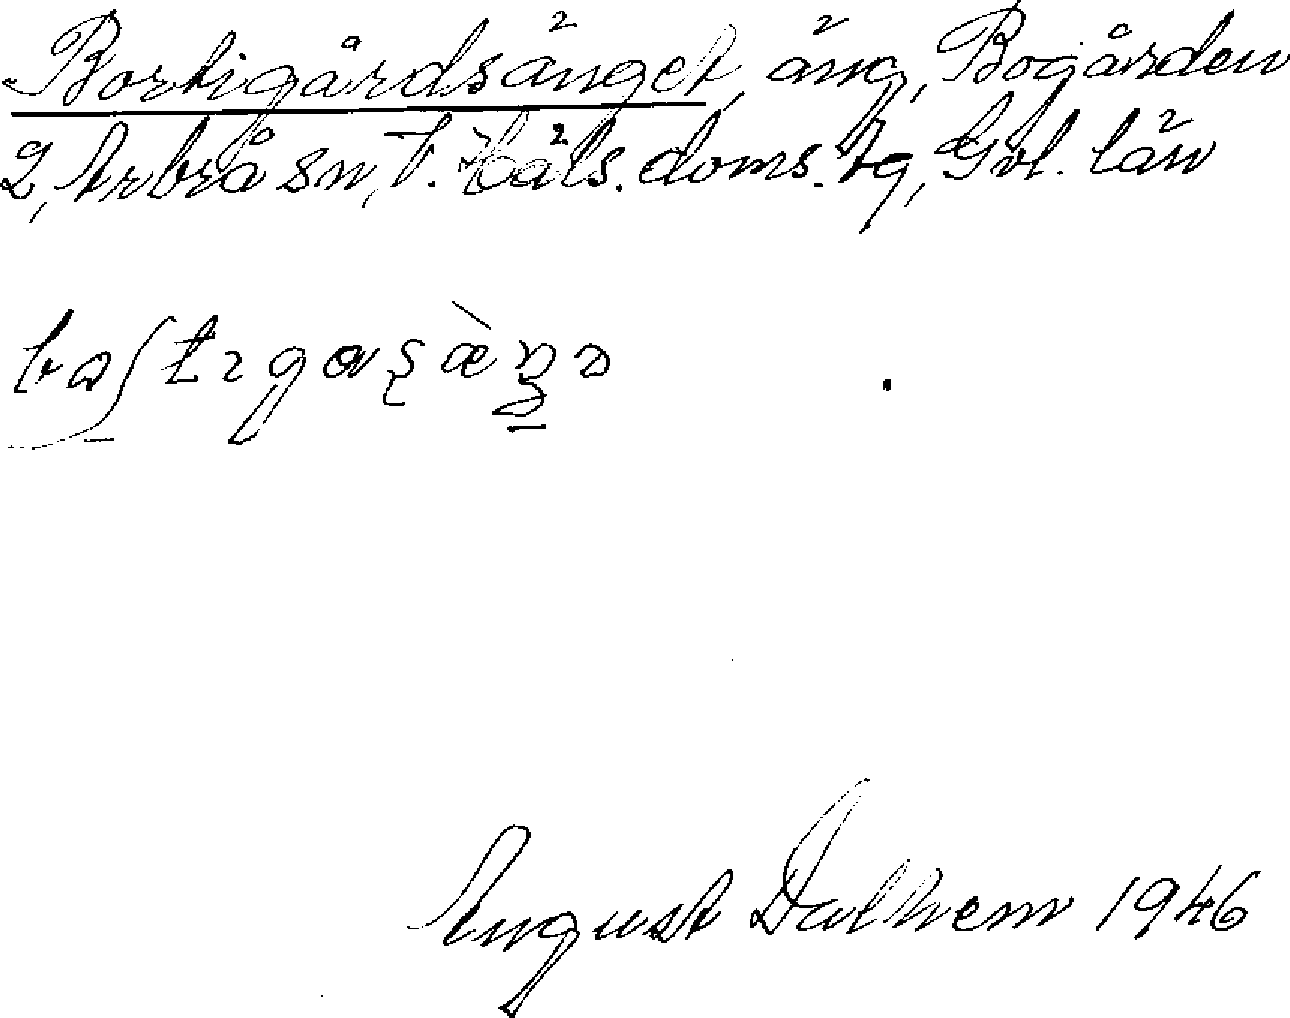 Bortigårdsänget, äng, Bogården
2, Arbrå sn, V. Häls. doms. tg, Gvl. län
August Dalhem 1946